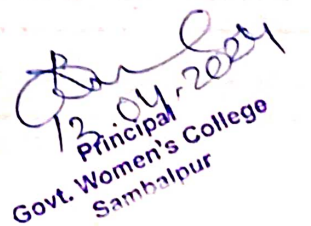 13.04.2024
Principal
Govt. Women's College
Sambalpur